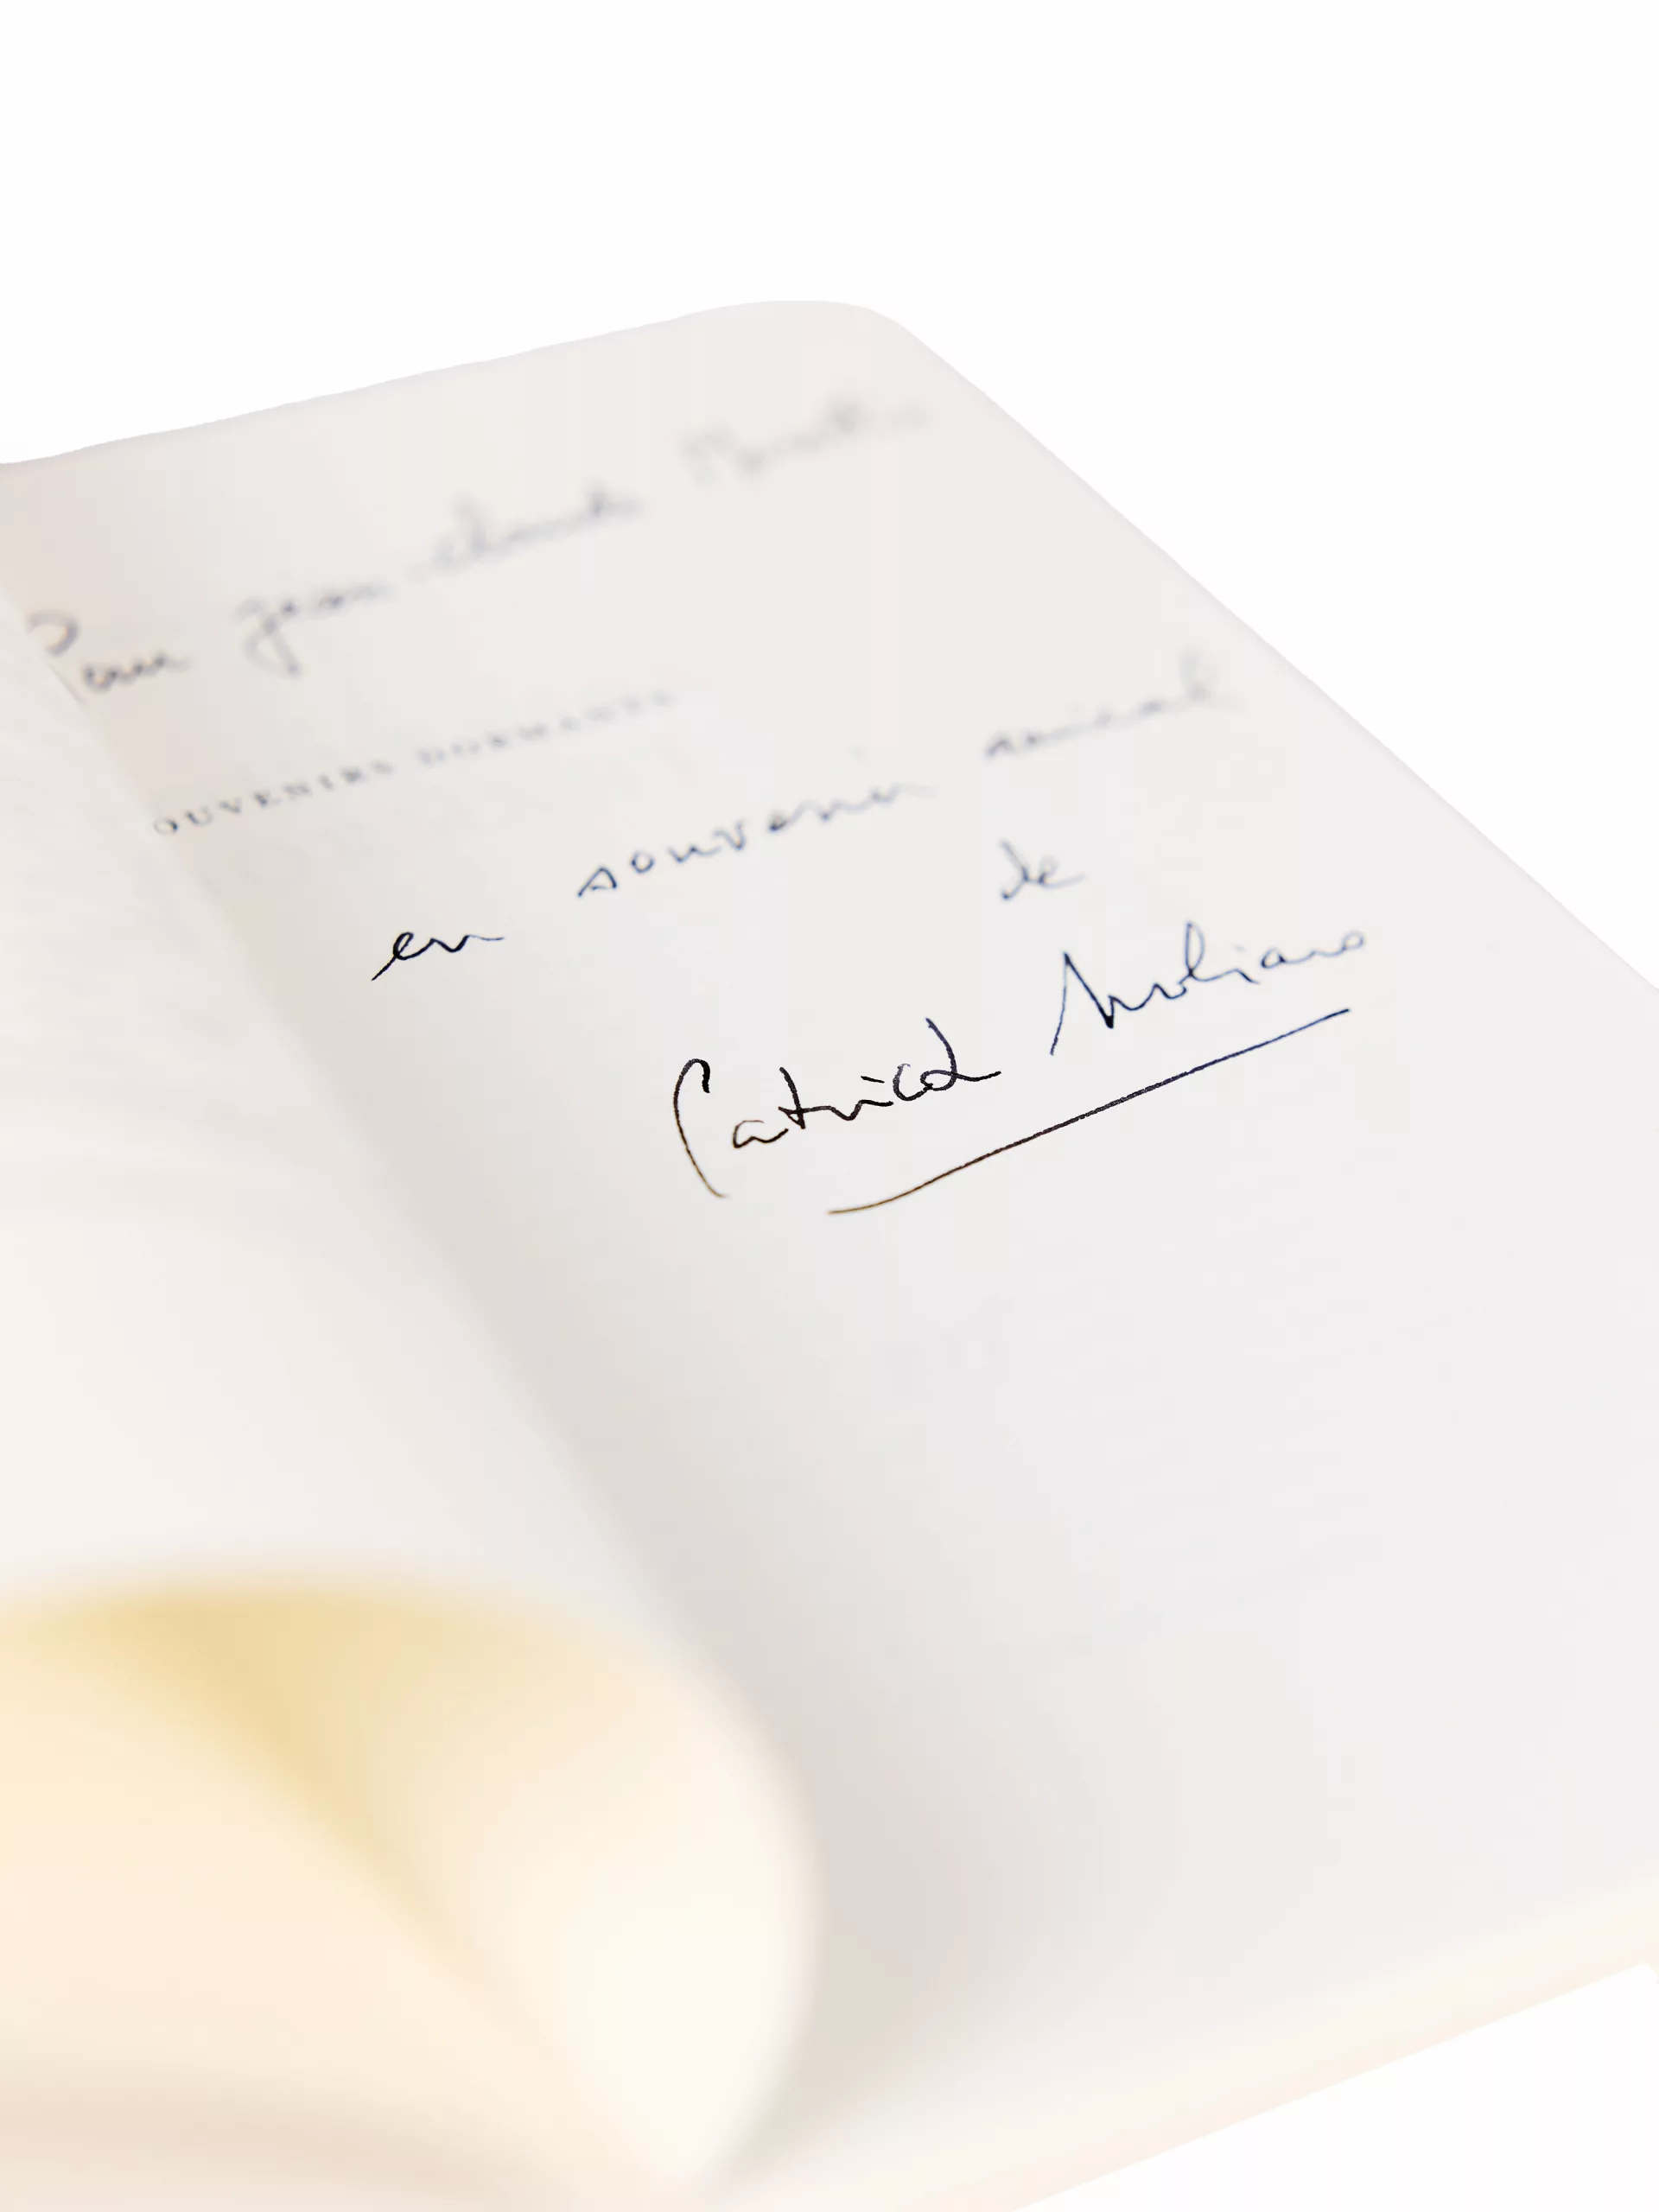 Pour Jean-Claude
OUVENIRS DORMANTS
en souvenir amical
de
Patrick Modiano